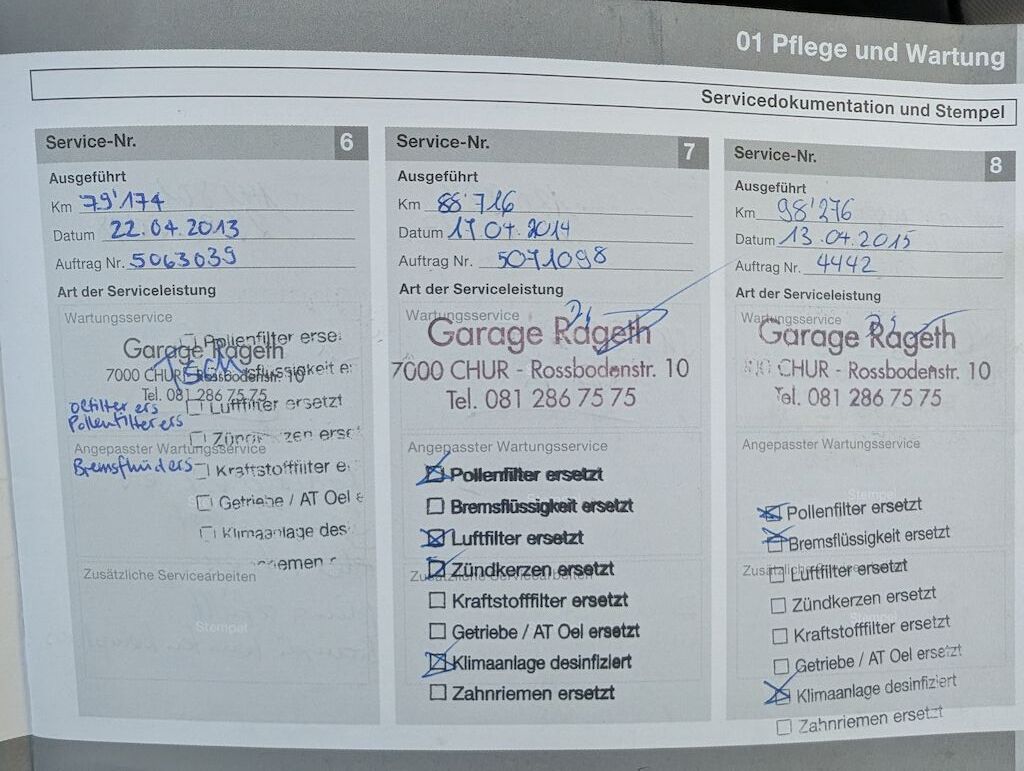 01 Pflege und Wartung
Servicedokumentation und Stempel
Service-Nr. 6
Ausgeführt
Km 79'174
Datum 22.04.2013
Auftrag Nr. 5063039
Art der Serviceleistung
Wartungsservice
Pollenfilter erse
Garage Rageth
7000 CHUR - Rossbodenstr. 10
Tel. 081 286 75 75
Oelfilter ers
Luftfilter ersetzt
Pollenfilter ers
Angepasster Wartungsservice
Bremsflüders
Kraftstofffilter e
Getriebe / AT Oel e
Klimaanlage des
Zusätzliche Servicearbeiten
Stempel
Service-Nr. 7
Ausgeführt
Km 88'716
Datum 17 04. 2014
Auftrag Nr. 5071098
Art der Serviceleistung
Wartungsservice
Garage Rageth
7000 CHUR - Rossbodenstr. 10
Tel. 081 286 75 75
Angepasster Wartungsservice
Pollenfilter ersetzt
Bremsflüssigkeit ersetzt
Luftfilter ersetzt
Zündkerzen ersetzt
Zusätzliche Servicearbeiten
Kraftstofffilter ersetzt
Getriebe / AT Oel ersetzt
Klimaanlage desinfiziert
Zahnriemen ersetzt
Service-Nr. 8
Ausgeführt
Km 98'276
Datum 13.04.2015
Auftrag Nr. 4442
Art der Serviceleistung
Wartungsservice
Garage Rageth
CHUR - Rossbodenstr. 10
Tel. 081 286 75 75
Angepasster Wartungsservice
Stempel
Pollenfilter ersetzt
Bremsflüssigkeit ersetzt
Luftfilter ersetzt
Zündkerzen ersetzt
Kraftstofffilter ersetzt
Getriebe / AT Oel ersetzt
Klimaanlage desinfiziert
Zahnriemen ersetzt